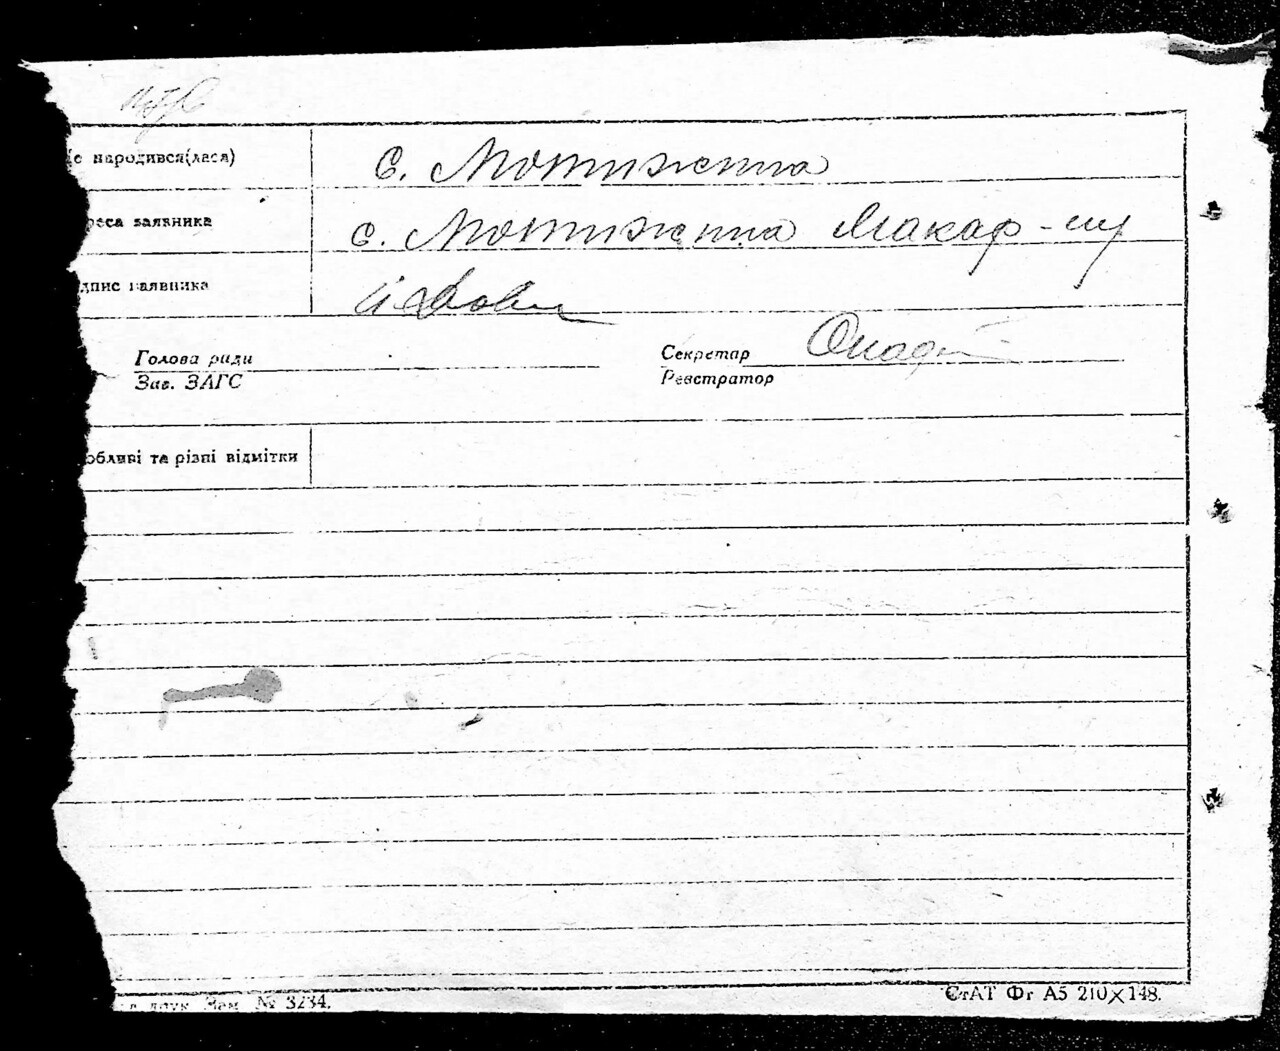 е народився(лася) с. Мотижитна
реса заявника с. Мотижитна Макар-
дпис заявника
Голова ради Секретар
Зав. ЗАГС Реєстратор
обливі та різні відмітки
друк. Зам. № 3234. СтАТ Фг А5 210×148.